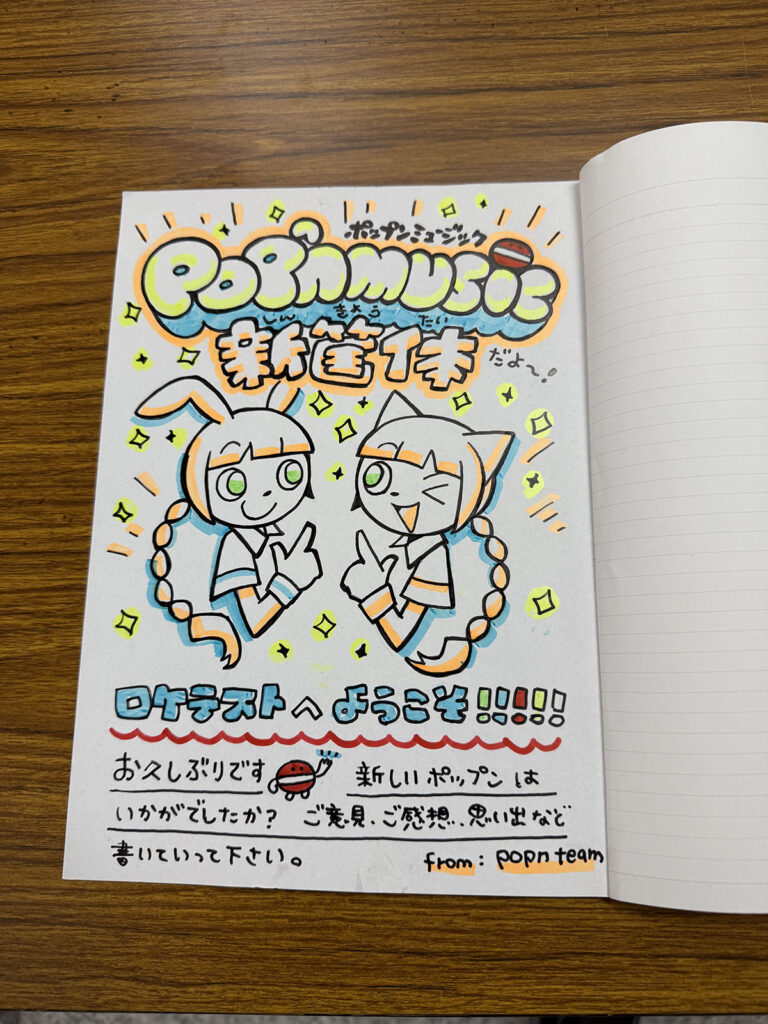 ポップンミュージック
POP'N MUSIC
しん きょう たい
新筐体 だよ〜!
ロケテストへ ようこそ!!!!!
お久しぶりです 新しい ポップン は
いかがでしたか? ご意見、ご感想、思い出など
書いていって下さい。
from: popn team